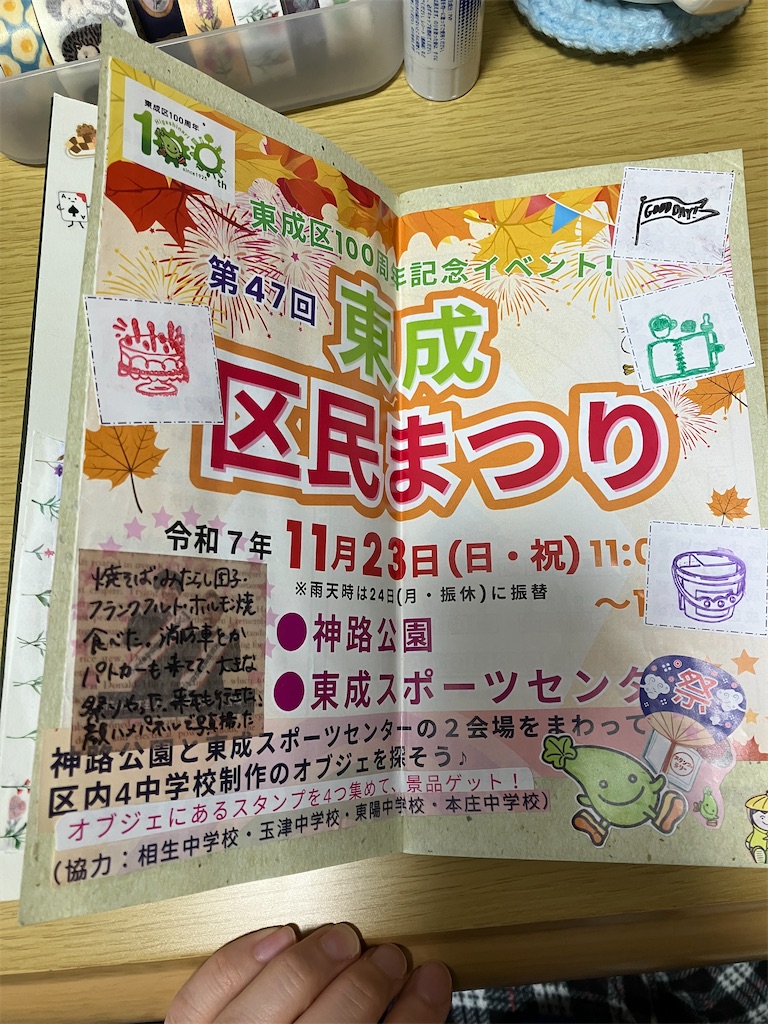 東成区100周年
Higashinari
100th
since1925
東成区100周年記念イベント!
GOOD DAY!
第47回
東成
区民まつり
令和7年 11月23日(日・祝) 11:0
※雨天時は24日(月・振休)に振替
~1
●神路公園
●東成スポーツセンタ
焼そば・みたらし団子・
フランクフルト・ホルモン焼
食べた。消防車とか
パトカーも来てて、大きな
祭りやった。来年も行きたい
顔ハメパネルで写真撮った
祭
スタンプラリー
神路公園と東成スポーツセンターの2会場をまわって
区内4中学校制作のオブジェを探そう♪
オブジェにあるスタンプを4つ集めて、景品ゲット!
(協力:相生中学校・玉津中学校・東陽中学校・本庄中学校)